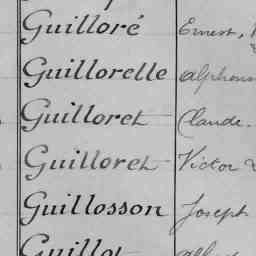 Guilloré Ernest,
Guillorelle
Guilloret Claude.
Guilloret Victor
Guillosson Joseph
Guillot